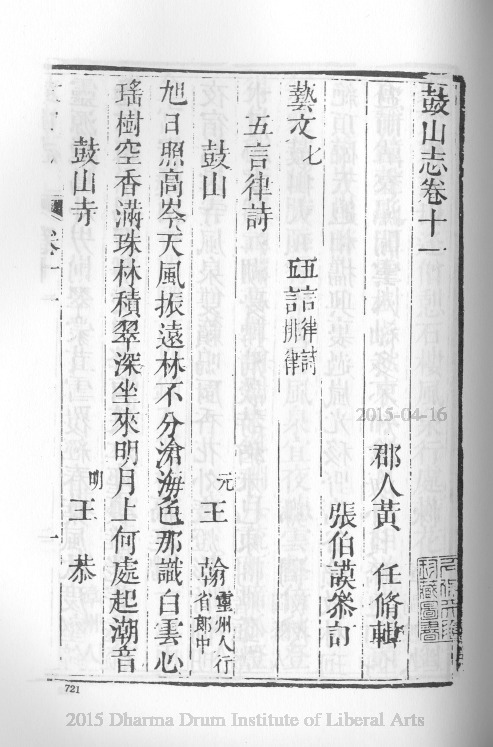 鼓山志卷十一
郡人黃 任脩輯
張伯謨叅訂
藝文七 五言律詩 五言排律
五言律詩
鼓山 元 王 翰 靈州人行省郎中
旭日照高岑天風振遠林不分滄海色那識白雲心
瑤樹空香滿珠林積翠深坐來明月上何處起潮音
鼓山寺 明 王 恭
卷十一 一
721
2015-04-16
2015 Dharma Drum Institute of Liberal Arts